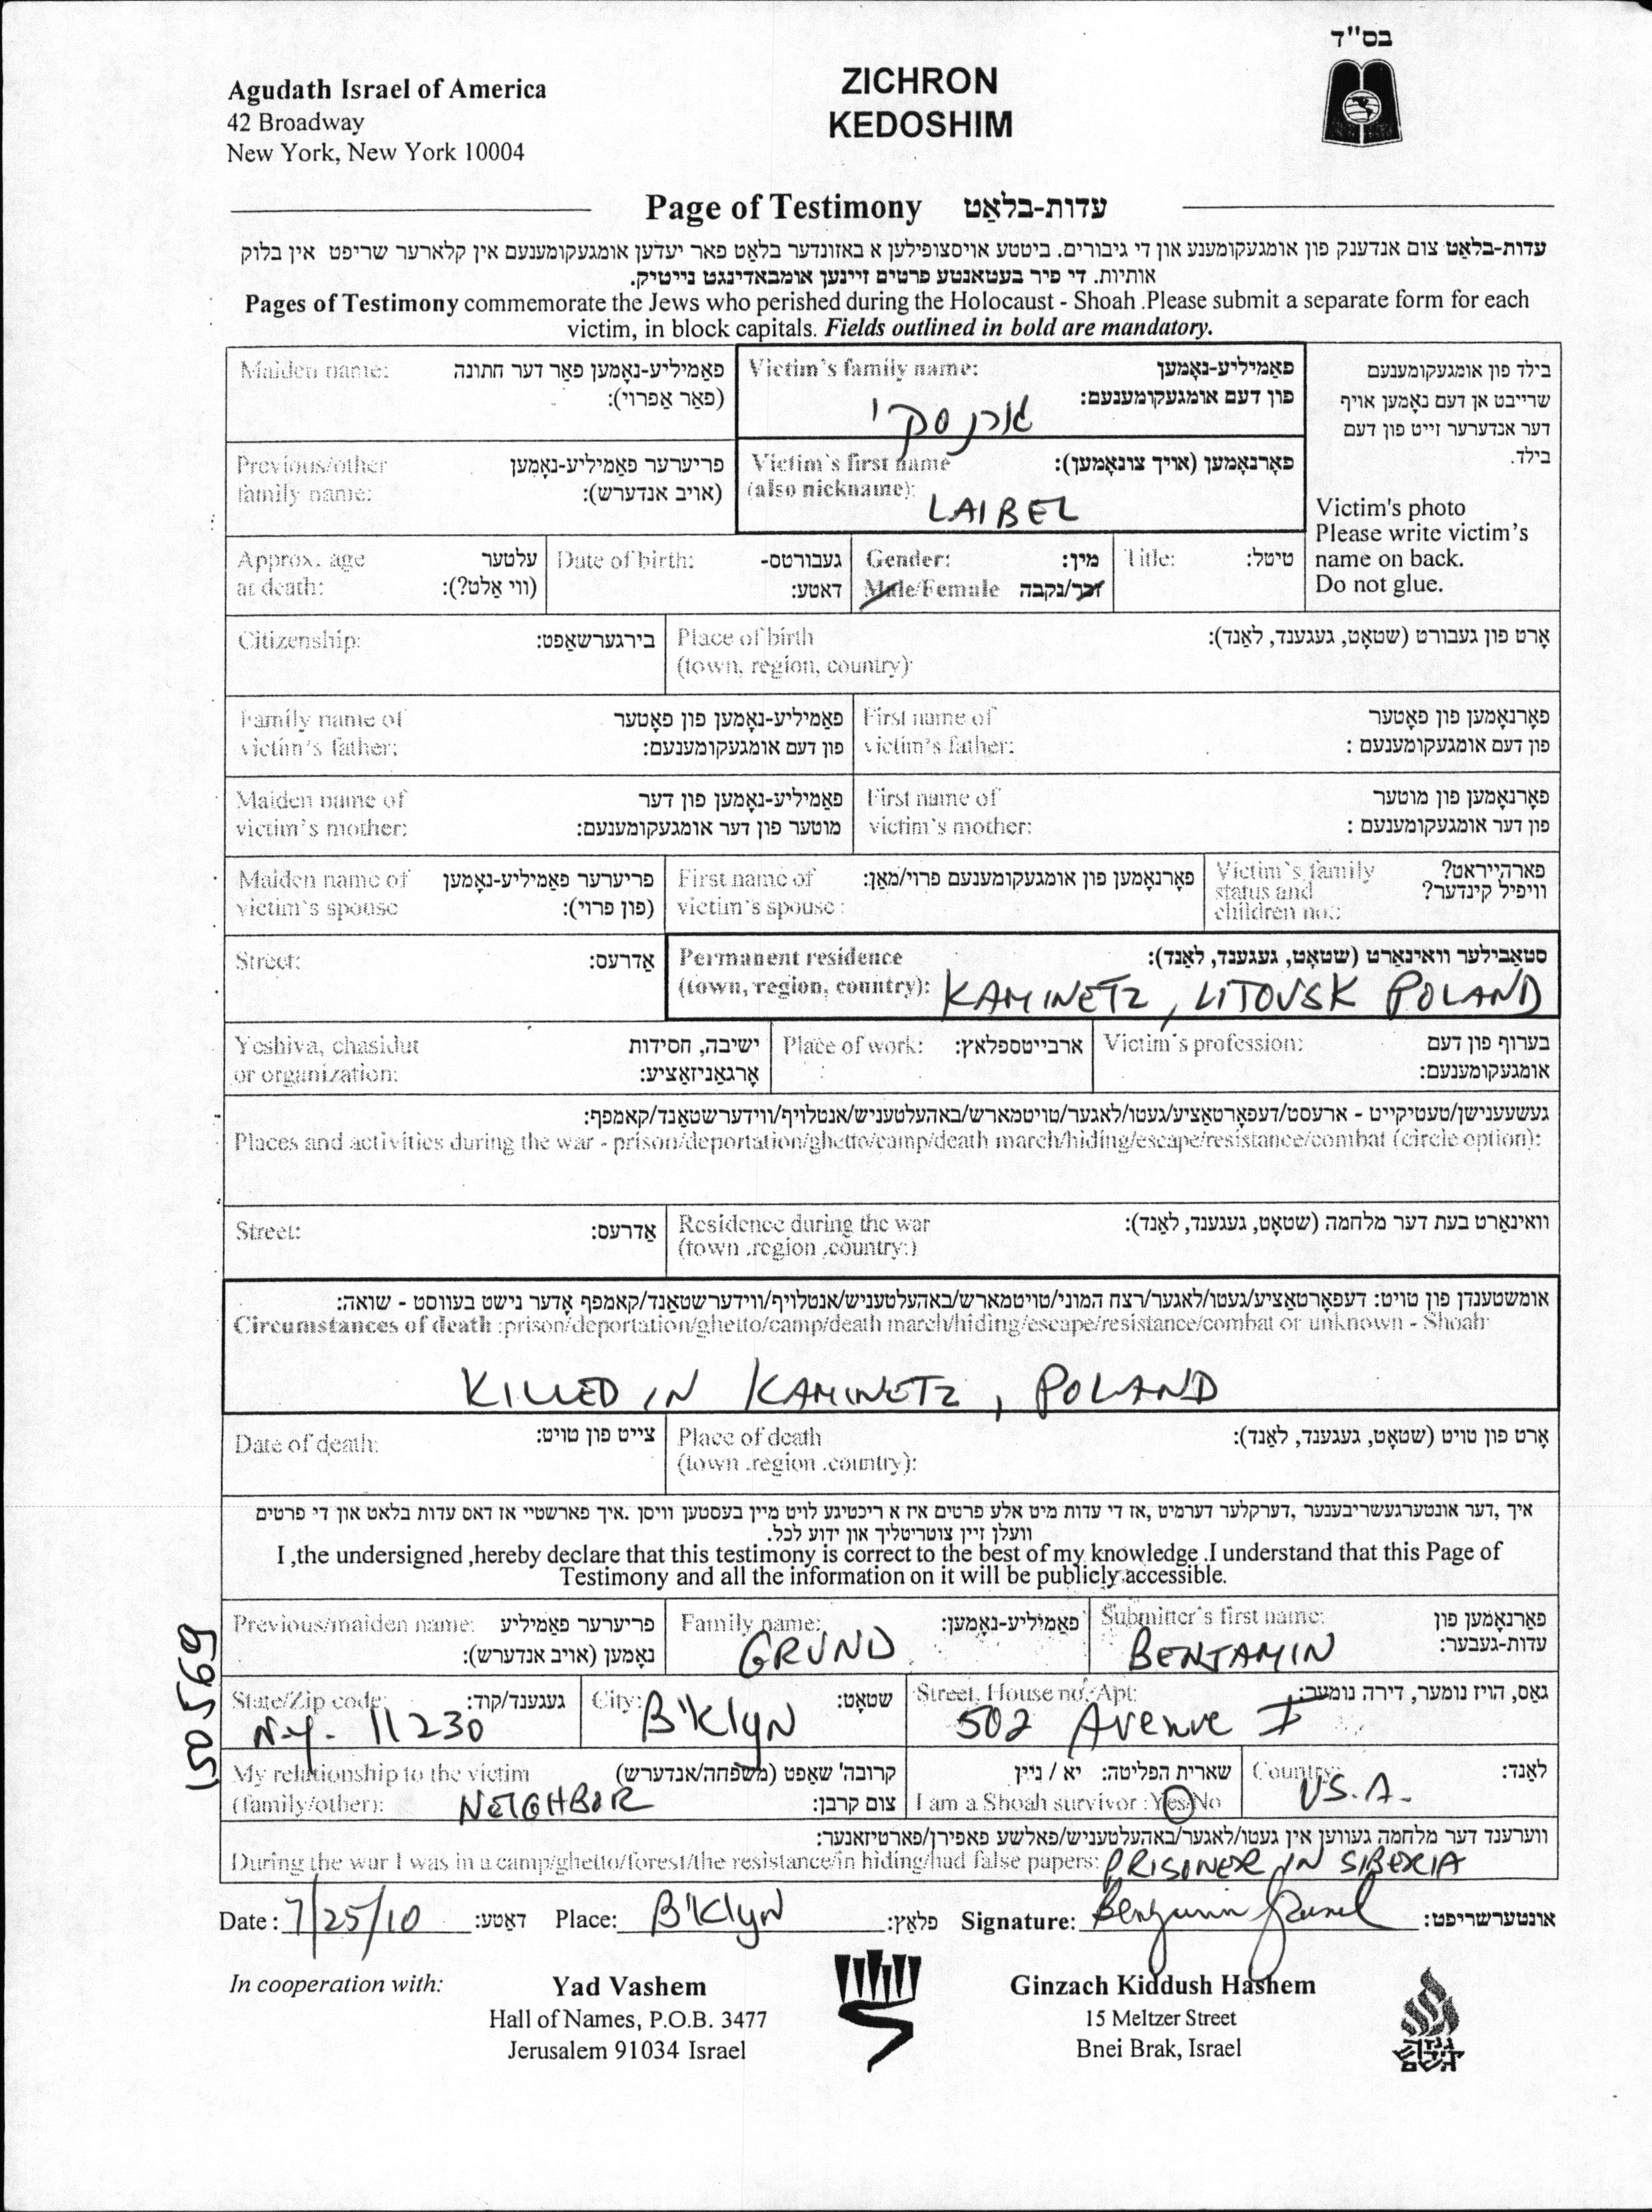 בס"ד
Agudath Israel of America
42 Broadway
New York, New York 10004
ZICHRON
KEDOSHIM
Page of Testimony עדות-בלאַט
עדות-בלאַט צום אנדענק פון אומגעקומענע און די גיבורים. ביטטע אויסצופילען א באזונדער בלאַט פאר יעדען אומגעקומענעם אין קלארער שריפט אין בלוק
אותיות. די פיר בעטאנטע פרטים זיינען אומבאדינגט נייטיק.
Pages of Testimony commemorate the Jews who perished during the Holocaust - Shoah .Please submit a separate form for each
victim, in block capitals. Fields outlined in bold are mandatory.
Maiden name: פאַמיליע-נאָמען פאַר דער חתונה
(פאַר אַפרוי):
Victim's family name: פאַמיליע-נאָמען
פון דעם אומגעקומענעם:
בילד פון אומגעקומענעם
שרייבט אן דעם נאָמען אויף
דער אנדערער זייט פון דעם
בילד.
Previous/other פריערער פאַמיליע-נאָמען
family name: (אויב אנדערש):
Victim's first name פאָרנאָמען (אויך צונאָמען):
(also nickname):
LAIBEL
Victim's photo
Please write victim's
name on back.
Do not glue.
Approx. age עלטער
at death: (ווי אַלט?):
Date of birth: געבורטס-
דאטע:
Gender: מין:
Male/Female זכר/נקבה
Title: טיטל:
Citizenship: בירגערשאַפט:
Place of birth אָרט פון געבורט (שטאָט, געגענד, לאַנד):
(town, region, country):
Family name of פאַמיליע-נאָמען פון פאָטער
victim's father: פון דעם אומגעקומענעם:
First name of פאָרנאָמען פון פאָטער
victim's father: פון דעם אומגעקומענעם :
Maiden name of פאַמיליע-נאָמען פון דער
victim's mother: מוטער פון דער אומגעקומענעם:
First name of פאָרנאָמען פון מוטער
victim's mother: פון דער אומגעקומענעם :
Maiden name of פריערער פאַמיליע-נאָמען
victim's spouse (פון פרוי):
First name of פאָרנאָמען פון אומגעקומענעם פרוי/מאַן:
victim's spouse :
Victim's family פארהייראט?
status and וויפיל קינדער?
children no.:
Street: אַדרעס:
Permanent residence סטאַבילער וואוינאָרט (שטאָט, געגענד, לאַנד):
(town, region, country): KAMINETZ, LITOVSK POLAND
Yeshiva, chasidut ישיבה, חסידות
or organization: אָרגאַניזאַציע:
Place of work: ארבייטספלאץ:
Victim's profession: בערוף פון דעם
אומגעקומענעם:
געשעענישן/טעטיקייט - ארעסט/דעפאָרטאַציע/געטו/לאגער/טויטמארש/באהעלטעניש/אנטלויף/ווידערשטאַנד/קאמפף:
Places and activities during the war - prison/deportation/ghetto/camp/death march/hiding/escape/resistance/combat (circle option):
Street: אַדרעס:
Residence during the war וואוינאָרט בעת דער מלחמה (שטאָט, געגענד, לאַנד):
(town .region .country:)
אומשטענדן פון טויט: דעפאָרטאַציע/געטו/לאגער/רצח המוני/טויטמארש/באהעלטעניש/אנטלויף/ווידערשטאַנד/קאמפף אָדער נישט בעוווסט - שואה:
Circumstances of death :prison/deportation/ghetto/camp/death march/hiding/escape/resistance/combat or unknown - Shoah
KILLED IN KAMINETZ, POLAND
Date of death: צייט פון טויט:
Place of death אָרט פון טויט (שטאָט, געגענד, לאַנד):
(town .region .country):
איך ,דער אונטערגעשריבענער ,דערקלער דערמיט ,אז די עדות מיט אלע פרטים איז א ריכטיגע לויט מיין בעסטען וויסן .איך פארשטיי אז דאס עדות בלאט און די פרטים
וועלן זיין צוטריטליך און ידוע לכל.
I ,the undersigned ,hereby declare that this testimony is correct to the best of my knowledge .I understand that this Page of
Testimony and all the information on it will be publicly accessible.
Previous/maiden name: פריערער פאַמיליע
נאָמען (אויב אנדערש):
Family name: פאַמיליע-נאָמען:
GRUND
Submitter's first name: פאָרנאָמען פון
עדות-געבער:
BENJAMIN
State/Zip code: געגענד/קוד:
N.Y. 11230
City: שטאָט:
B'KlyN
Street, House no, Apt: גאַס, הויז נומער, דירה נומער:
502 Avenue I
My relationship to the victim קרובה' שאַפט (משפחה/אנדערש)
(family/other): NEIGHBOR צום קרבן:
שארית הפליטה: יא / ניין
I am a Shoah survivor :Yes/No
Country: לאַנד:
U.S.A.
ווערענד דער מלחמה געווען אין געטו/לאגער/באהעלטעניש/פאלשע פאפירן/פארטיזאנער:
During the war I was in a camp/ghetto/forest/the resistance/in hiding/had false papers: PRISONER IN SIBERIA
Date : 7/25/10 דאַטע: Place: B'KlyN פלאַץ: Signature: Benjamin Grund אונטערשריפט:
150569
In cooperation with:
Yad Vashem
Hall of Names, P.O.B. 3477
Jerusalem 91034 Israel
Ginzach Kiddush Hashem
15 Meltzer Street
Bnei Brak, Israel
גנזך
קידוש
השם